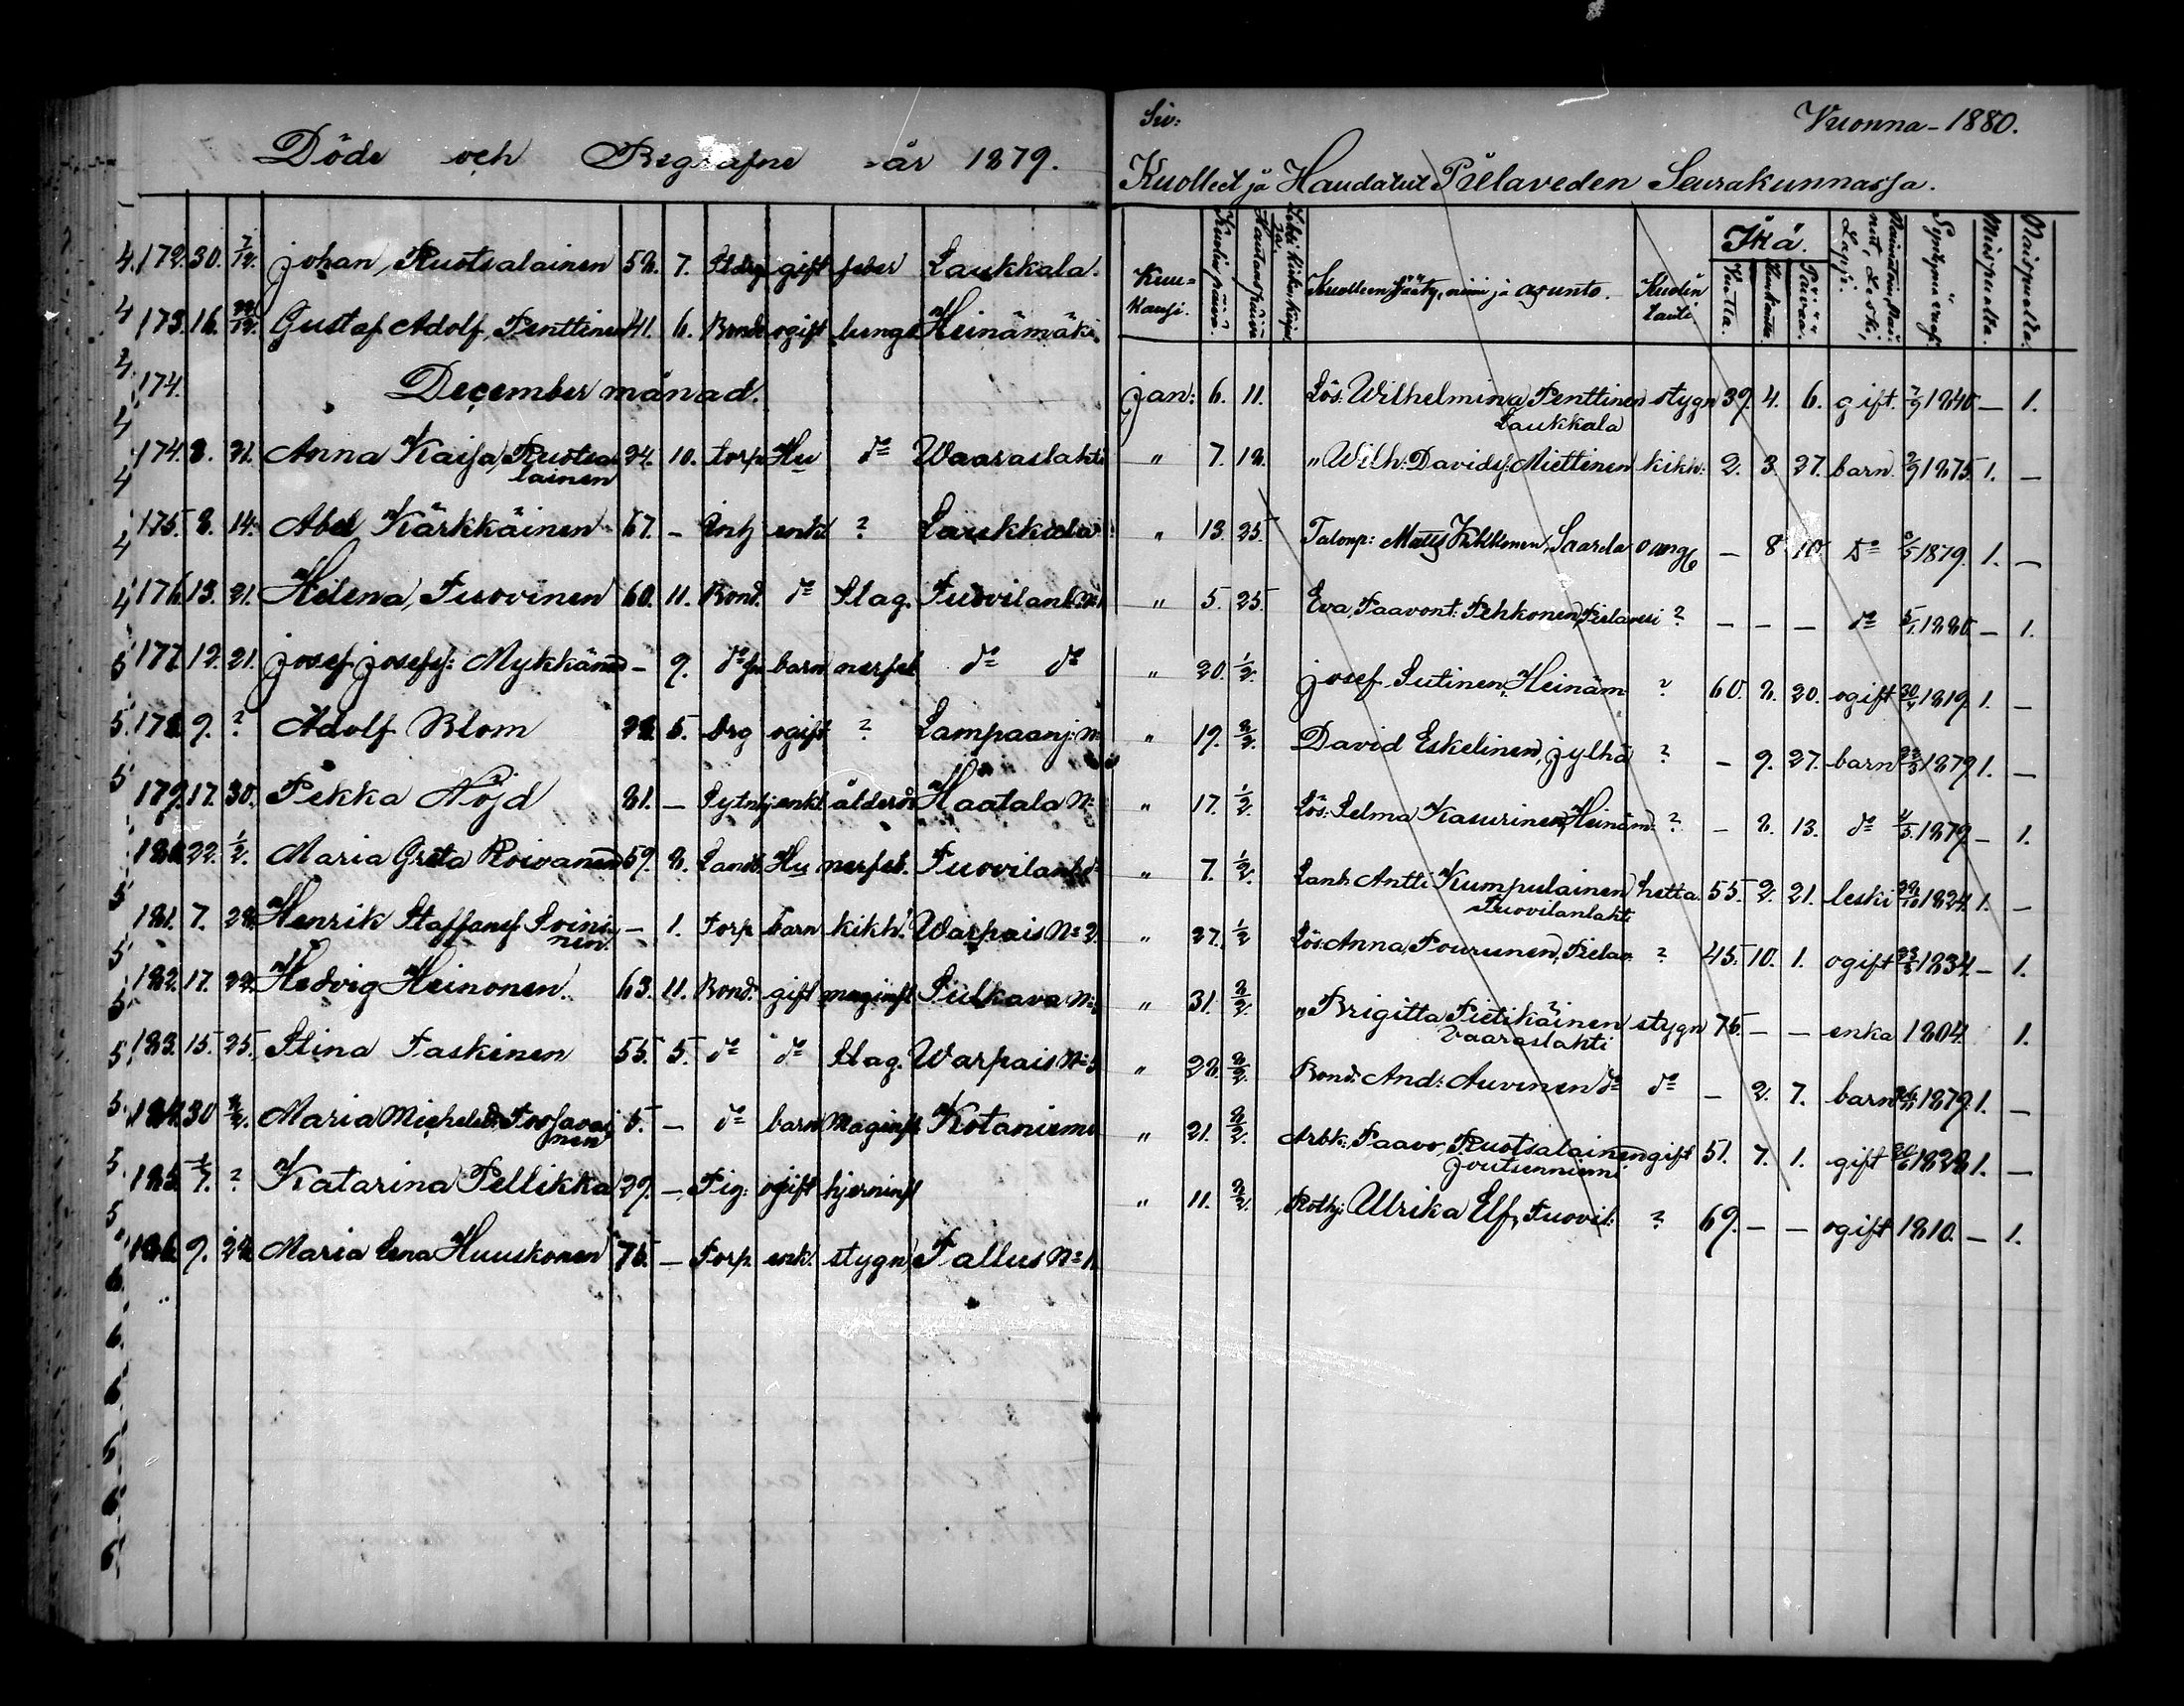 Döde och Begrafne år 1879.
172. 30. 7/12. Johan Ruotsalainen 52. 7. gift feber Laukkala.
173. 16. Gustaf Adolf Penttinen 41. 6. Bond ogift lungs Heinämäki
174. December månad.
174. 8. 21. Anna Kaisa Ruotsa- 24. 10. torp Hu do Waaraslahti
lainen
175. 8. 14. Abel Kärkkäinen 67. – Inh enkl ? Laukkala
176. 13. 21. Helena Tuovinen 60. 11. Bond. do Slag. Tuovilanl. N:
177. 12. 21. Josef Josefs: Mykkänen – 9. do barn nerfeb do do
178. 9. ? Adolf Blom 28. 5. drg ogift ? Lampaanj: N:
179. 17. 30. Pekka Nöjd 81. – enkl ålderd Haatala N:
180. 22. 1/2. Maria Greta Roivanen 59. 8. Landb. Hu nerfeb. Tuovilanl.
181. 7. 28. Henrik Staffansf. Soini- – 1. Torp barn kikh. Warpais N: 2.
nen.
182. 17. 22. Hedvig Heinonen. 63. 11. Bond. gift maginfl Sulkava N:
183. 15. 25. Stina Taskinen 55. 5. do do Slag. Warpais N: 5
184. 30 Maria Michelsd. Toovavai- 5. – do barn Maginfl Kotaniemi
nen
185. 1/7. ? Katarina Pellikka 29. – Pig: ogift hjerninfl
186. 9. 28. Maria Lena Huuskonen 75. – Torp. enk. stygn Tallus N: 1.
Siv: Vuonna - 1880.
Kuolleet ja Haudatut Pielaveden Seurakunnassa.
Kuukausi. Kuolinpäivä. Hautauspäivä Kuolleen sääty, nimi ja asunto. Kuolintauti Ikä. Vuotta. Kuukautta. Päivää. Leski, Lapsi. Miespuolta. Naispuolta.
Jan: 6. 11. Lös. Wilhelmina Penttinen stygn 39. 4. 6. gift. 7/9 1840 – 1.
Laukkala
" 7. 18. " Wilh: Davids: Miettinen kikh: 2. 3. 27. barn. 1875 1. –
" 13. 25. Talonp: Matts Kekkonen, Saarela – 8 10 Do 1879. 1. –
" 5. 25. Eva Paavont: Pehkonen, Pielavesi ? – – – do 5/1 1880 – 1.
" 20. 1/2. Josef Sutinen, Heinäm ? 60. 8. 20. ogift 1819. 1. –
" 19. 8/2. David Eskelinen, Jylhä ? – 9. 27. barn 1879 1. –
" 17. 1/2. Lös: Selma Kasurinen, Heinäm: ? – 8. 13. do 1879 – 1.
" 7. 1/2. Lanb Antti Kumpulainen hetta. 55. 2. 21. leski 1824. 1. –
Tuovilanlahti
" 27. 1/2 Lös: Anna Pourunen, Pielav. ? 45. 10. 1. ogift 1834 – 1.
" 31. 8/2. " Brigitta Pietikäinen stygn 75. – – enka 1804. 1.
Vaaraslahti
" 28. 8/2. Bond. And: Auvinen do do – 2. 7. barn 1879. 1. –
" 21. 8/2. Arbk: Paavo Ruotsalainen gift 51. 7. 1. gift 1828 1. –
Joutsenniemi
" 11. 8/2. Rothj: Ulrika Elf, Tuovil: ? 69. – – ogift 1810. – 1.